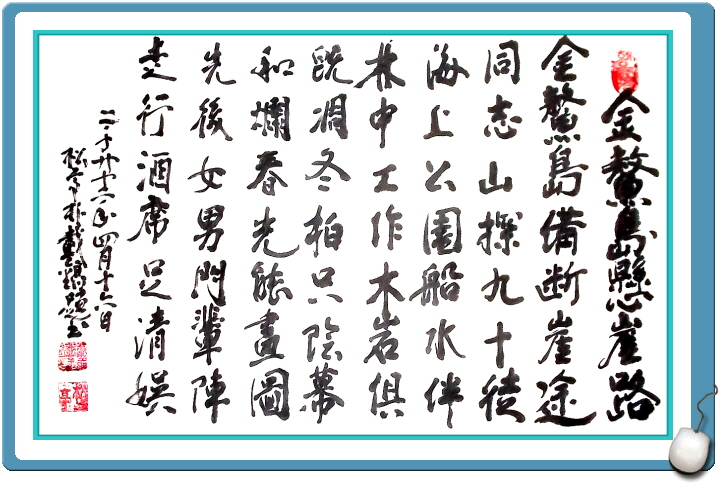 金鰲島懸崖路
金鰲島備断崖途
同志山探九十徒
海上公園船水伴
林中工作木岩俱
既凋冬柏只陰幕
和爛春光能畫圖
先後女男門輩陣
走行酒席足清娛
四月十六日
松亭